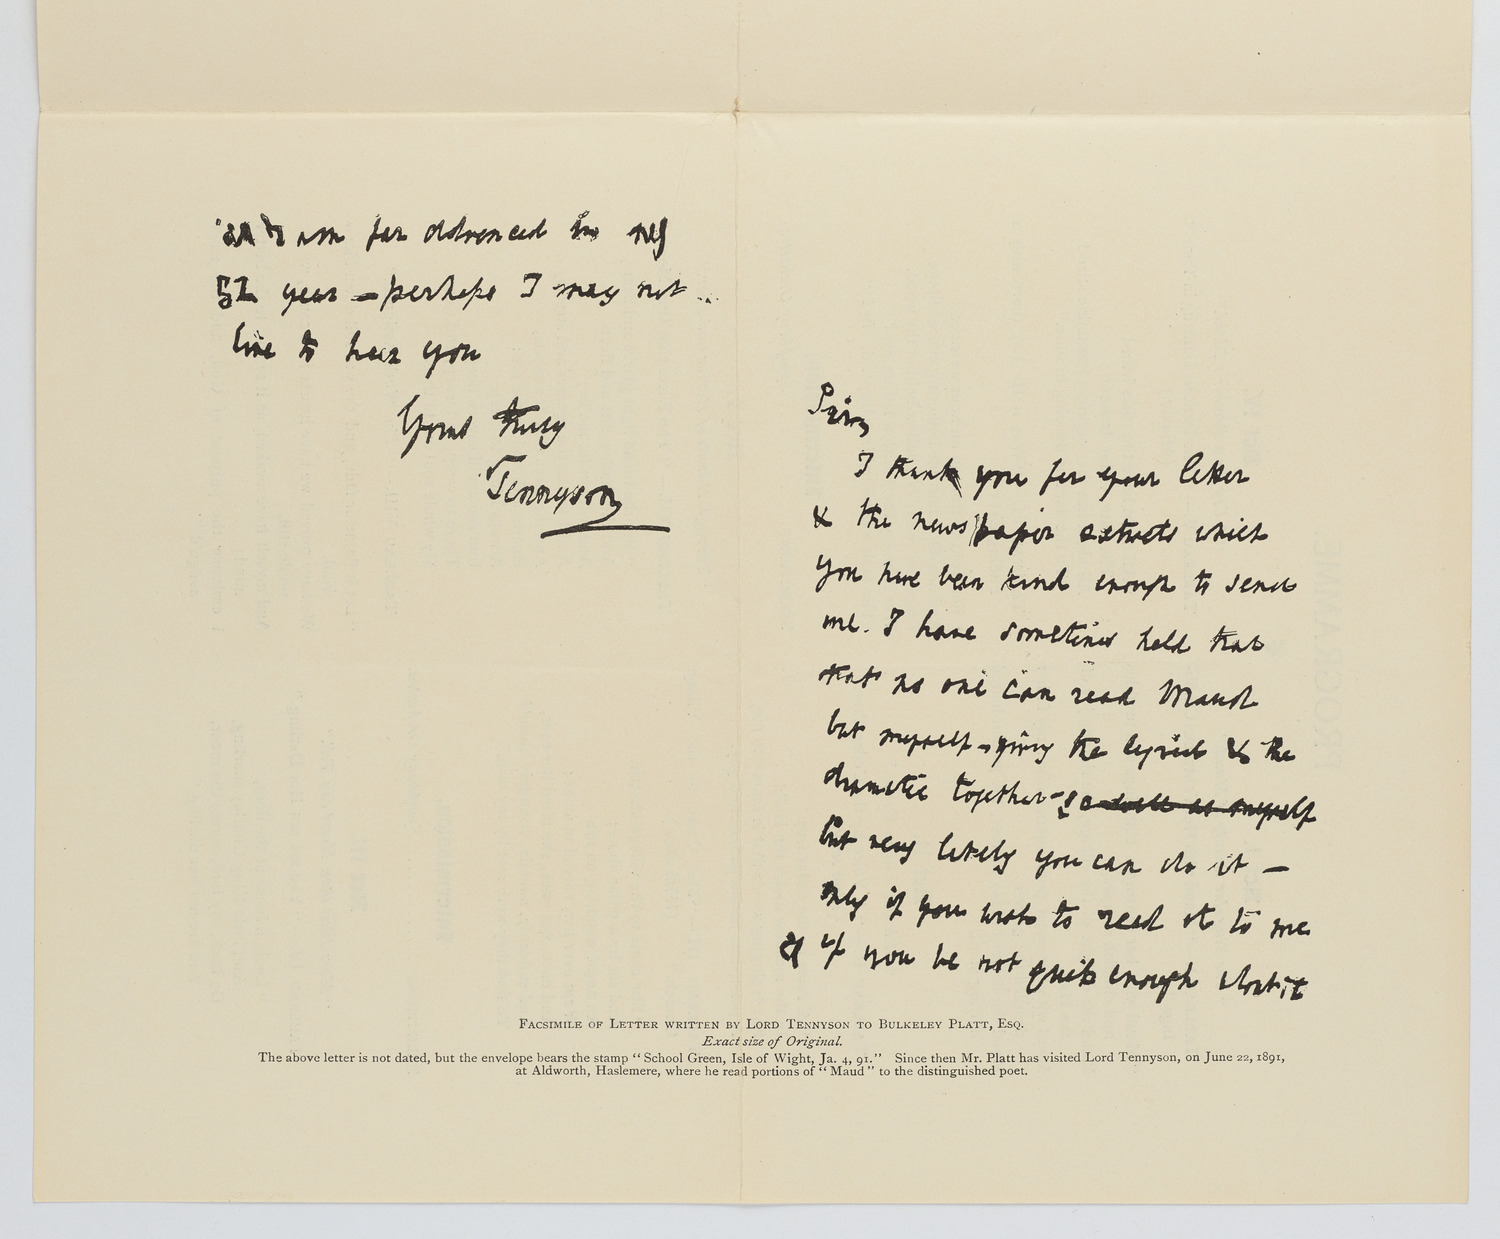 Sir,
I thank you for your letter
& the newspaper extracts which
you have been kind enough to send
me. I have sometimes held that
that no one can read Maud
but myself – giving the lyrical & the
dramatic together – so well as myself
but very likely you can do it –
only if you wish to read it to me
& if you be not quick enough about it
as I am far advanced in my
82 year – perhaps I may not
live to hear you
Yours truly
Tennyson
FACSIMILE OF LETTER WRITTEN BY LORD TENNYSON TO BULKELEY PLATT, ESQ.
Exact size of Original.
The above letter is not dated, but the envelope bears the stamp “School Green, Isle of Wight, Ja. 4, 91.” Since then Mr. Platt has visited Lord Tennyson, on June 22, 1891,
at Aldworth, Haslemere, where he read portions of “Maud” to the distinguished poet.